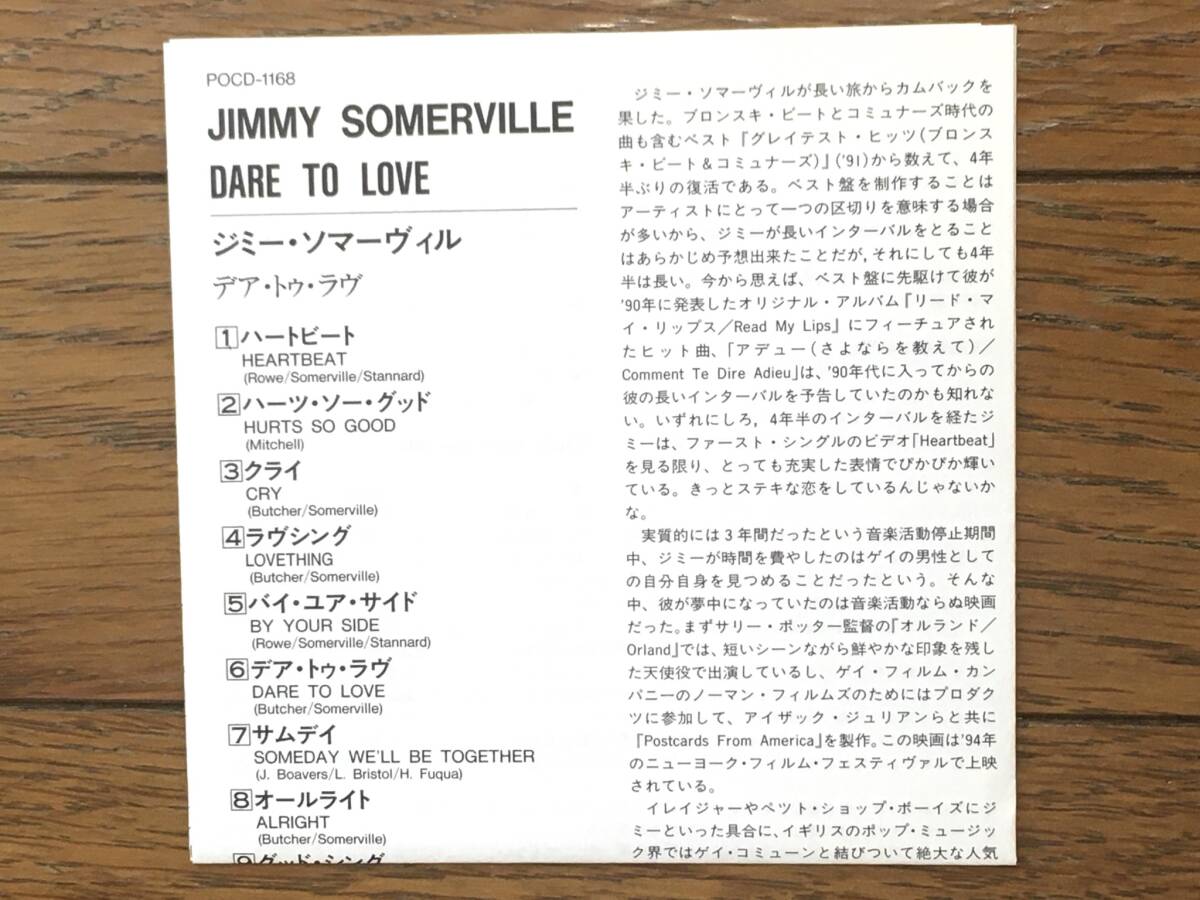 POCD-1168
JIMMY SOMERVILLE
DARE TO LOVE
ジミー・ソマーヴィル
デア・トゥ・ラヴ
1 ハートビート
HEARTBEAT
(Rowe/Somerville/Stannard)
2 ハーツ・ソー・グッド
HURTS SO GOOD
(Mitchell)
3 クライ
CRY
(Butcher/Somerville)
4 ラヴシング
LOVETHING
(Butcher/Somerville)
5 バイ・ユア・サイド
BY YOUR SIDE
(Rowe/Somerville/Stannard)
6 デア・トゥ・ラヴ
DARE TO LOVE
(Butcher/Somerville)
7 サムデイ
SOMEDAY WE'LL BE TOGETHER
(J. Boavers/L. Bristol/H. Fuqua)
8 オールライト
ALRIGHT
(Butcher/Somerville)
9 グッド・シング
ジミー・ソマーヴィルが長い旅からカムバックを
果した。ブロンスキ・ビートとコミュナーズ時代の
曲も含むベスト『グレイテスト・ヒッツ(ブロンス
キ・ビート&コミュナーズ)』('91)から数えて、4年
半ぶりの復活である。ベスト盤を制作することは
アーティストにとって一つの区切りを意味する場合
が多いから、ジミーが長いインターバルをとること
はあらかじめ予想出来たことだが, それにしても4年
半は長い。今から思えば、ベスト盤に先駆けて彼が
'90年に発表したオリジナル・アルバム『リード・マ
イ・リップス/Read My Lips』にフィーチュアされ
たヒット曲、「アデュー(さよならを教えて)/
Comment Te Dire Adieu」は、'90年代に入ってからの
彼の長いインターバルを予告していたのかも知れな
い。いずれにしろ, 4年半のインターバルを経たジ
ミーは、ファースト・シングルのビデオ「Heartbeat」
を見る限り、とっても充実した表情でぴかぴか輝い
ている。きっとステキな恋をしているんじゃないか
な。
実質的には3年間だったという音楽活動停止期間
中、ジミーが時間を費やしたのはゲイの男性として
の自分自身を見つめることだったという。そんな
中、彼が夢中になっていたのは音楽活動ならぬ映画
だった。まずサリー・ポッター監督の『オルランド/
Orland』では、短いシーンながら鮮やかな印象を残し
た天使役で出演しているし、ゲイ・フィルム・カン
パニーのノーマン・フィルムズのためにはプロダク
ツに参加して、アイザック・ジュリアンらと共に
『Postcards From America』を製作。この映画は'94年
のニューヨーク・フィルム・フェスティヴァルで上映
されている。
イレイジャーやペツト・ショップ・ボーイズにジ
ミーといった具合に、イギリスのポップ・ミュージッ
ク界ではゲイ・コミューンと結びついて絶大な人気